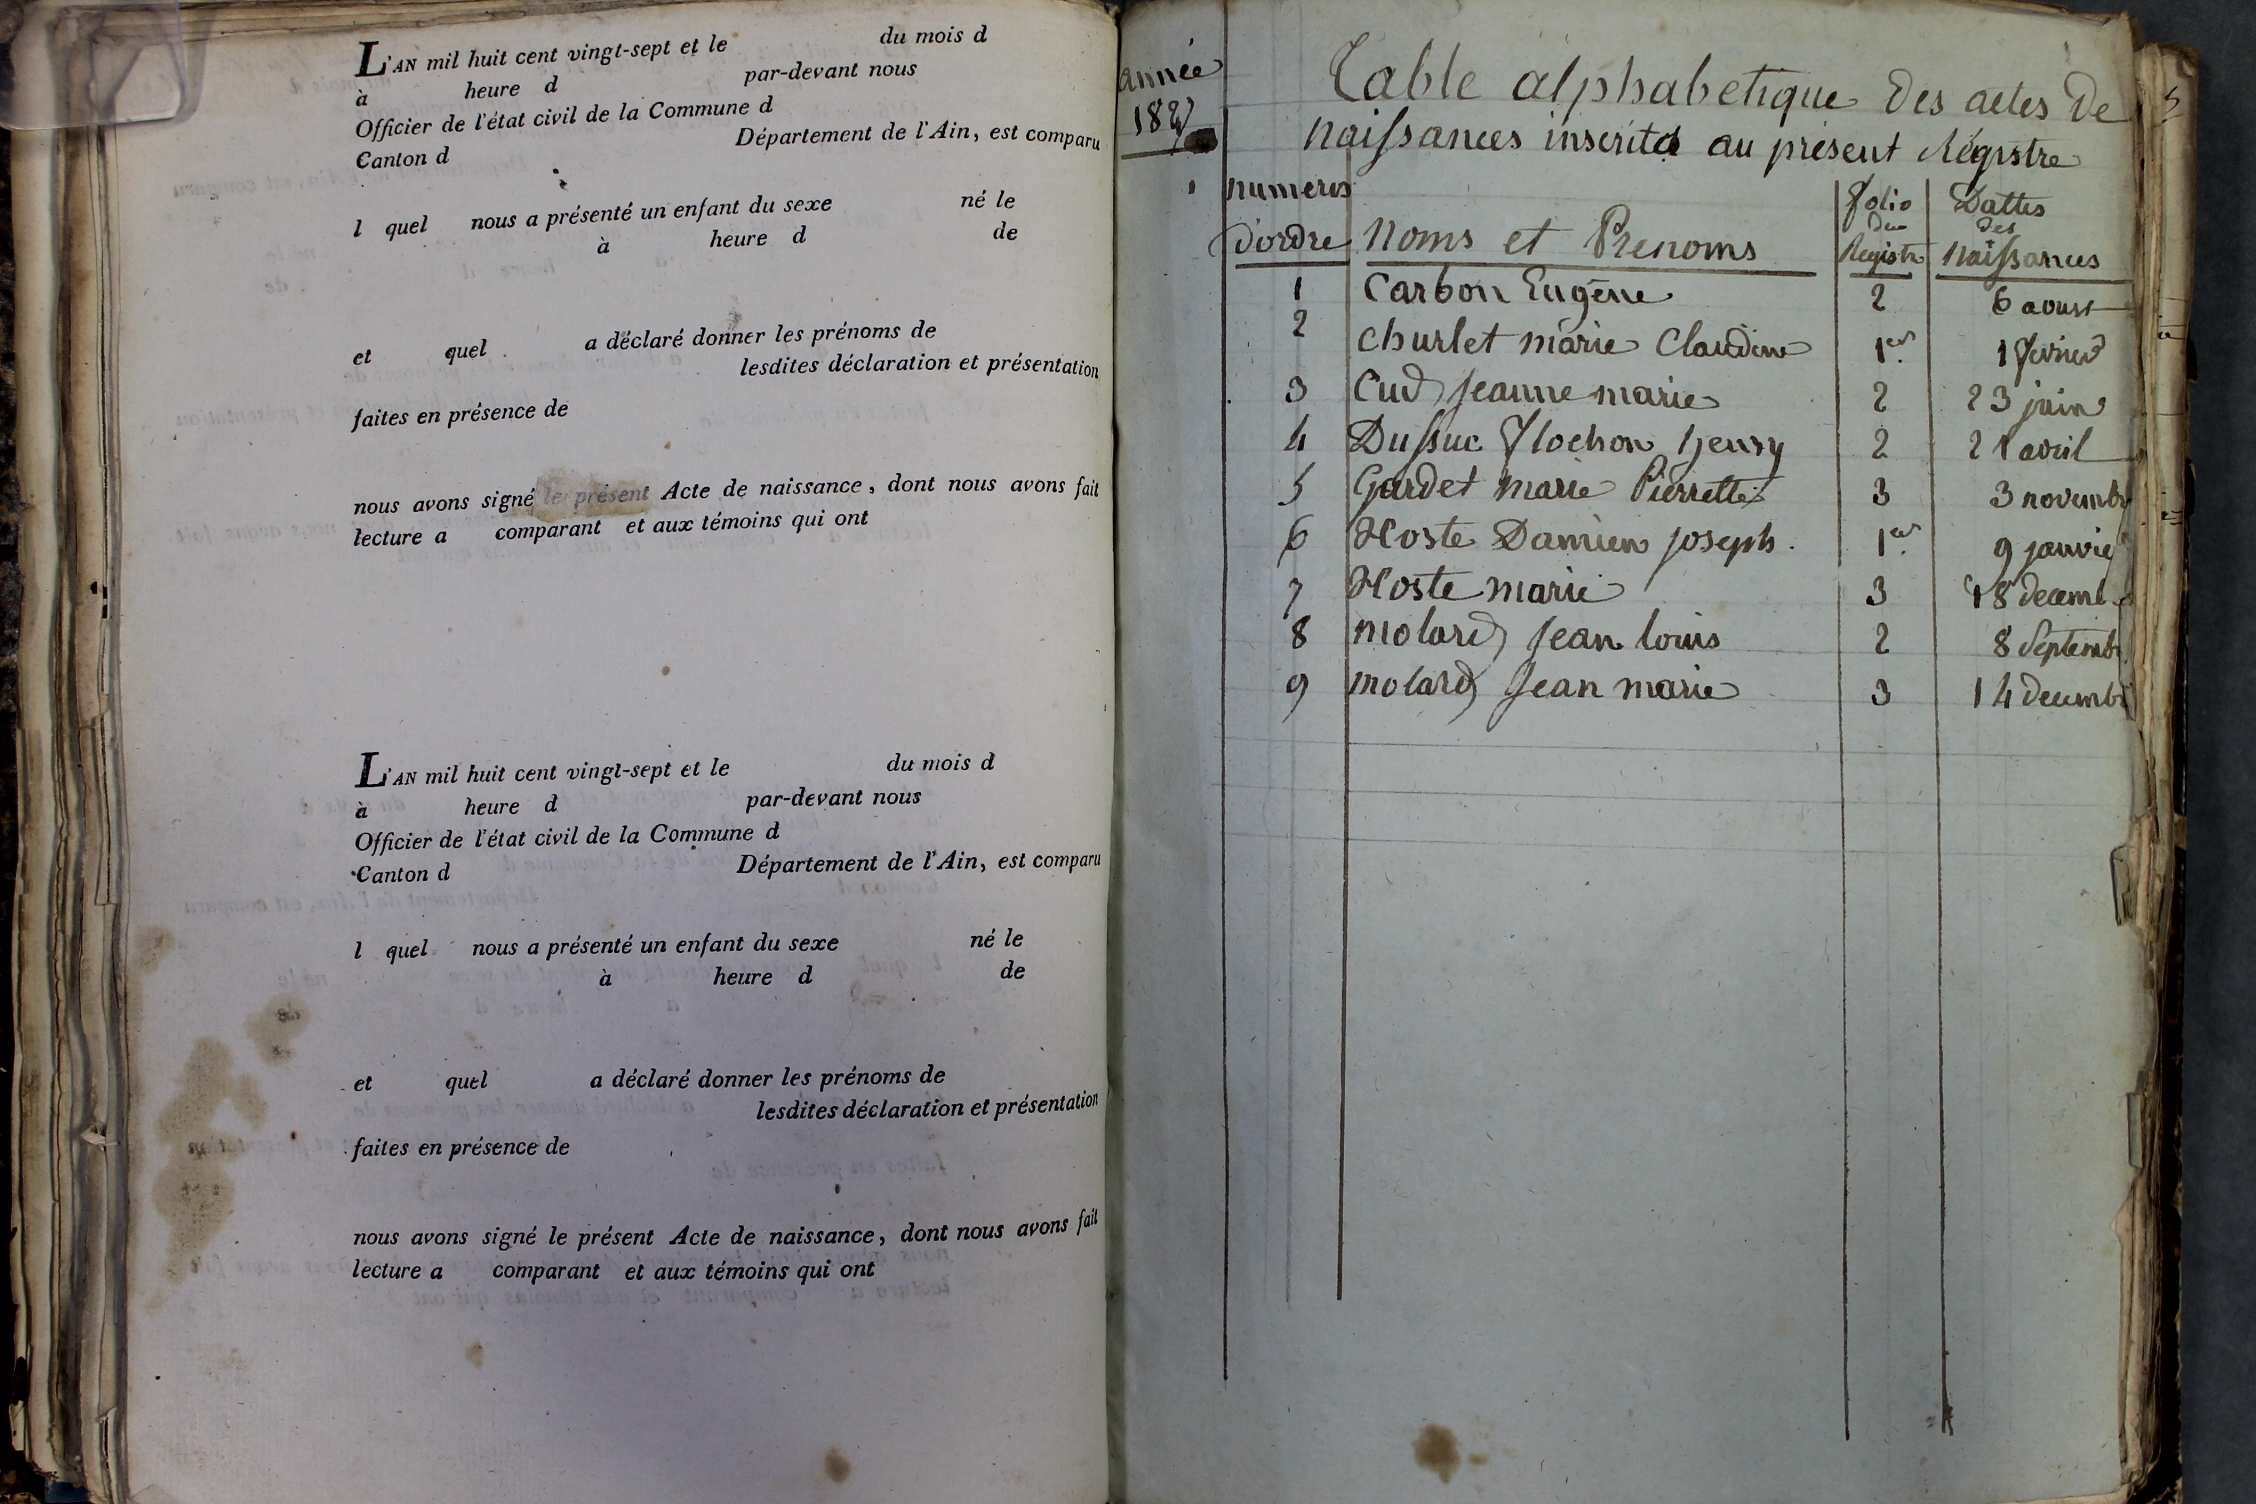 L'AN mil huit cent vingt-sept et le du mois d
à heure d par-devant nous
Officier de l'état civil de la Commune d
Canton d Département de l'Ain, est comparu
l quel nous a présenté un enfant du sexe né le
à heure d de
et quel a déclaré donner les prénoms de
lesdites déclaration et présentation
faites en présence de
nous avons signé le présent Acte de naissance, dont nous avons fait
lecture a comparant et aux témoins qui ont
L'AN mil huit cent vingt-sept et le du mois d
à heure d par-devant nous
Officier de l'état civil de la Commune d
Canton d Département de l'Ain, est comparu
l quel nous a présenté un enfant du sexe né le
à heure d de
et quel a déclaré donner les prénoms de
lesdites déclaration et présentation
faites en présence de
nous avons signé le présent Acte de naissance, dont nous avons fait
lecture a comparant et aux témoins qui ont
année
1827
Table alphabetique des actes de
naissances inscrits au présent Régistre
numeros
d'ordre Noms et Prenoms Folio du Registre Dattes des Naissances
1 Carbon Eugène 2 6 aoust
2 Churlet marie Claudine 1er 1 fevrier
3 Cud Jeanne marie 2 23 juin
4 Dussuc Flochon henry 2 21 avril
5 Gardet marie Pierrette 3 3 novembr
6 Hoste Damien joseph. 1er 9 janvie
7 Hoste marie 3 18 decemb
8 molard Jean louis 2 8 Septembr
9 molard Jean marie 3 14 decembr